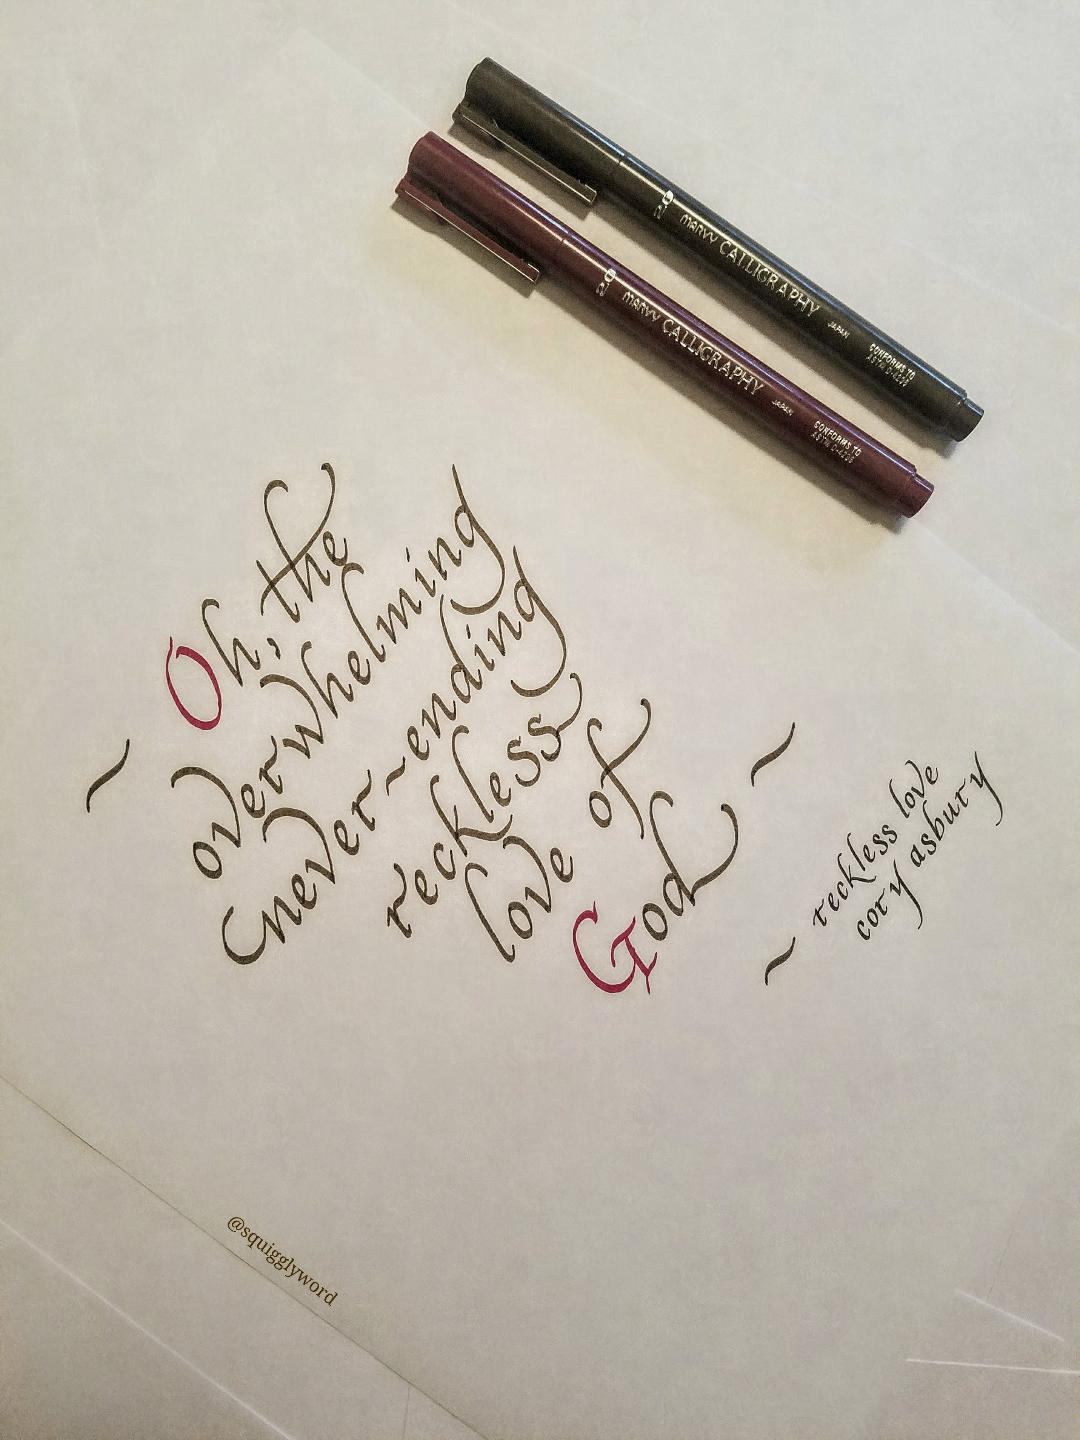 2.0 MARVY CALLIGRAPHY JAPAN CONFORMS TO ASTM D-4236
2.0 MARVY CALLIGRAPHY JAPAN CONFORMS TO ASTM D-4236
~ Oh, the
overwhelming
never~ending
reckless
love of
God ~
~ reckless love
cory asbury
@squigglyword